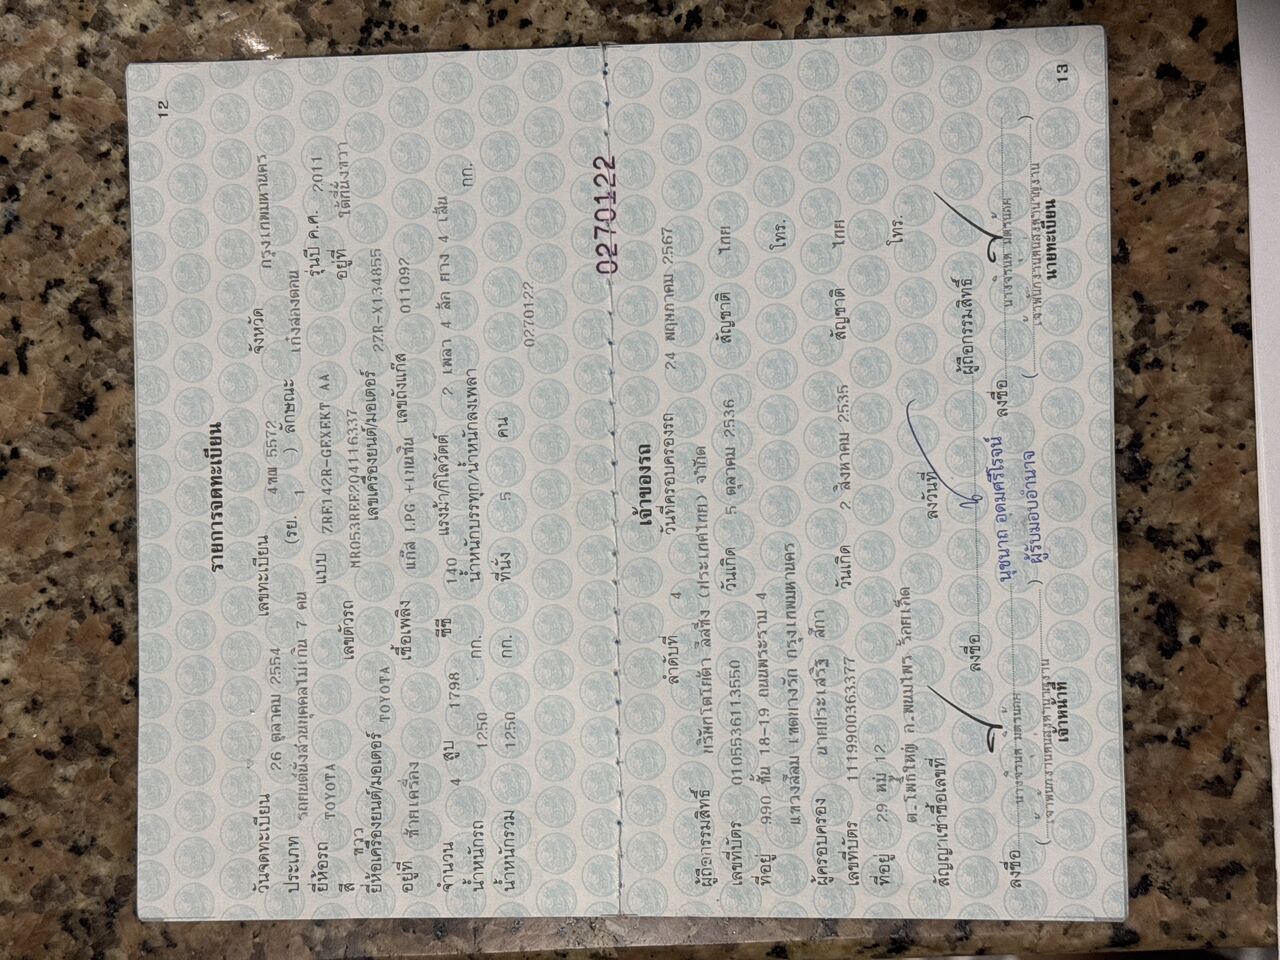 12
รายการจดทะเบียน
วันจดทะเบียน 26 ตุลาคม 2554 เลขทะเบียน 4ฆฒ 5572 จังหวัด กรุงเทพมหานคร
ประเภท รถยนต์นั่งส่วนบุคคลไม่เกิน 7 คน (รย. 1 ) ลักษณะ เก๋งสองตอน
ยี่ห้อรถ TOYOTA แบบ ZRE142R-GEXEKT AA รุ่นปี ค.ศ. 2011
สี ขาว เลขตัวรถ MR053REE204116337 อยู่ที่ ใต้ที่นั่งขวา
ยี่ห้อเครื่องยนต์/มอเตอร์ TOYOTA เลขเครื่องยนต์/มอเตอร์ 2ZR-X134855
อยู่ที่ ท้ายเครื่อง เชื้อเพลิง แก๊ส LPG +เบนซิน เลขถังแก๊ส 011092
จำนวน 4 สูบ 1798 ซีซี 140 แรงม้า/กิโลวัตต์ 2 เพลา 4 ล้อ ยาง 4 เส้น
น้ำหนักรถ 1250 กก. น้ำหนักบรรทุก/น้ำหนักลงเพลา กก.
น้ำหนักรวม 1250 กก. ที่นั่ง 5 คน
0270122
0270122
13
เจ้าของรถ
ลำดับที่ 4 วันที่ครอบครองรถ 24 พฤษภาคม 2567
ผู้ถือกรรมสิทธิ์ บริษัทโตโยต้า ลีสซิ่ง (ประเทศไทย) จำกัด
เลขที่บัตร 0105536113550 วันเกิด 5 ตุลาคม 2536 สัญชาติ ไทย
ที่อยู่ 990 ชั้น 18-19 ถนนพระราม 4
แขวงสีลม เขตบางรัก กรุงเทพมหานคร โทร.
ผู้ครอบครอง นายประเสริฐ สีกา
เลขที่บัตร 1119900363377 วันเกิด 2 สิงหาคม 2535 สัญชาติ ไทย
ที่อยู่ 29 หมู่ 12
ต.โพธิ์ใหญ่ อ.พนมไพร ร้อยเอ็ด โทร.
สัญญาเช่าซื้อเลขที่ ลงวันที่
ลงชื่อ ผู้ถือกรรมสิทธิ์
ลงชื่อ นุชนาถ อุดมศรีโรจน์ ลงชื่อ
ผู้รับมอบอำนาจ
เจ้าหน้าที่ นายทะเบียน